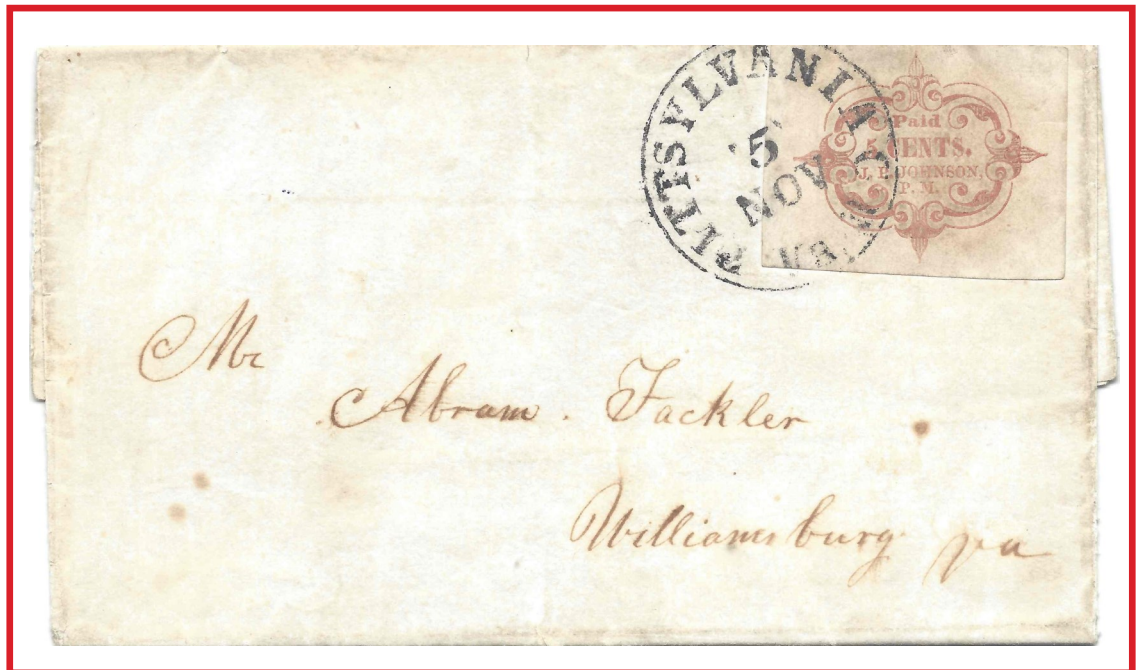 PITTSYLVANIA C.H.
5
NOV
VA.
Paid
5 CENTS.
J. P. JOHNSON,
P. M.
Mr
Abram. Fackler
Williamsburg va